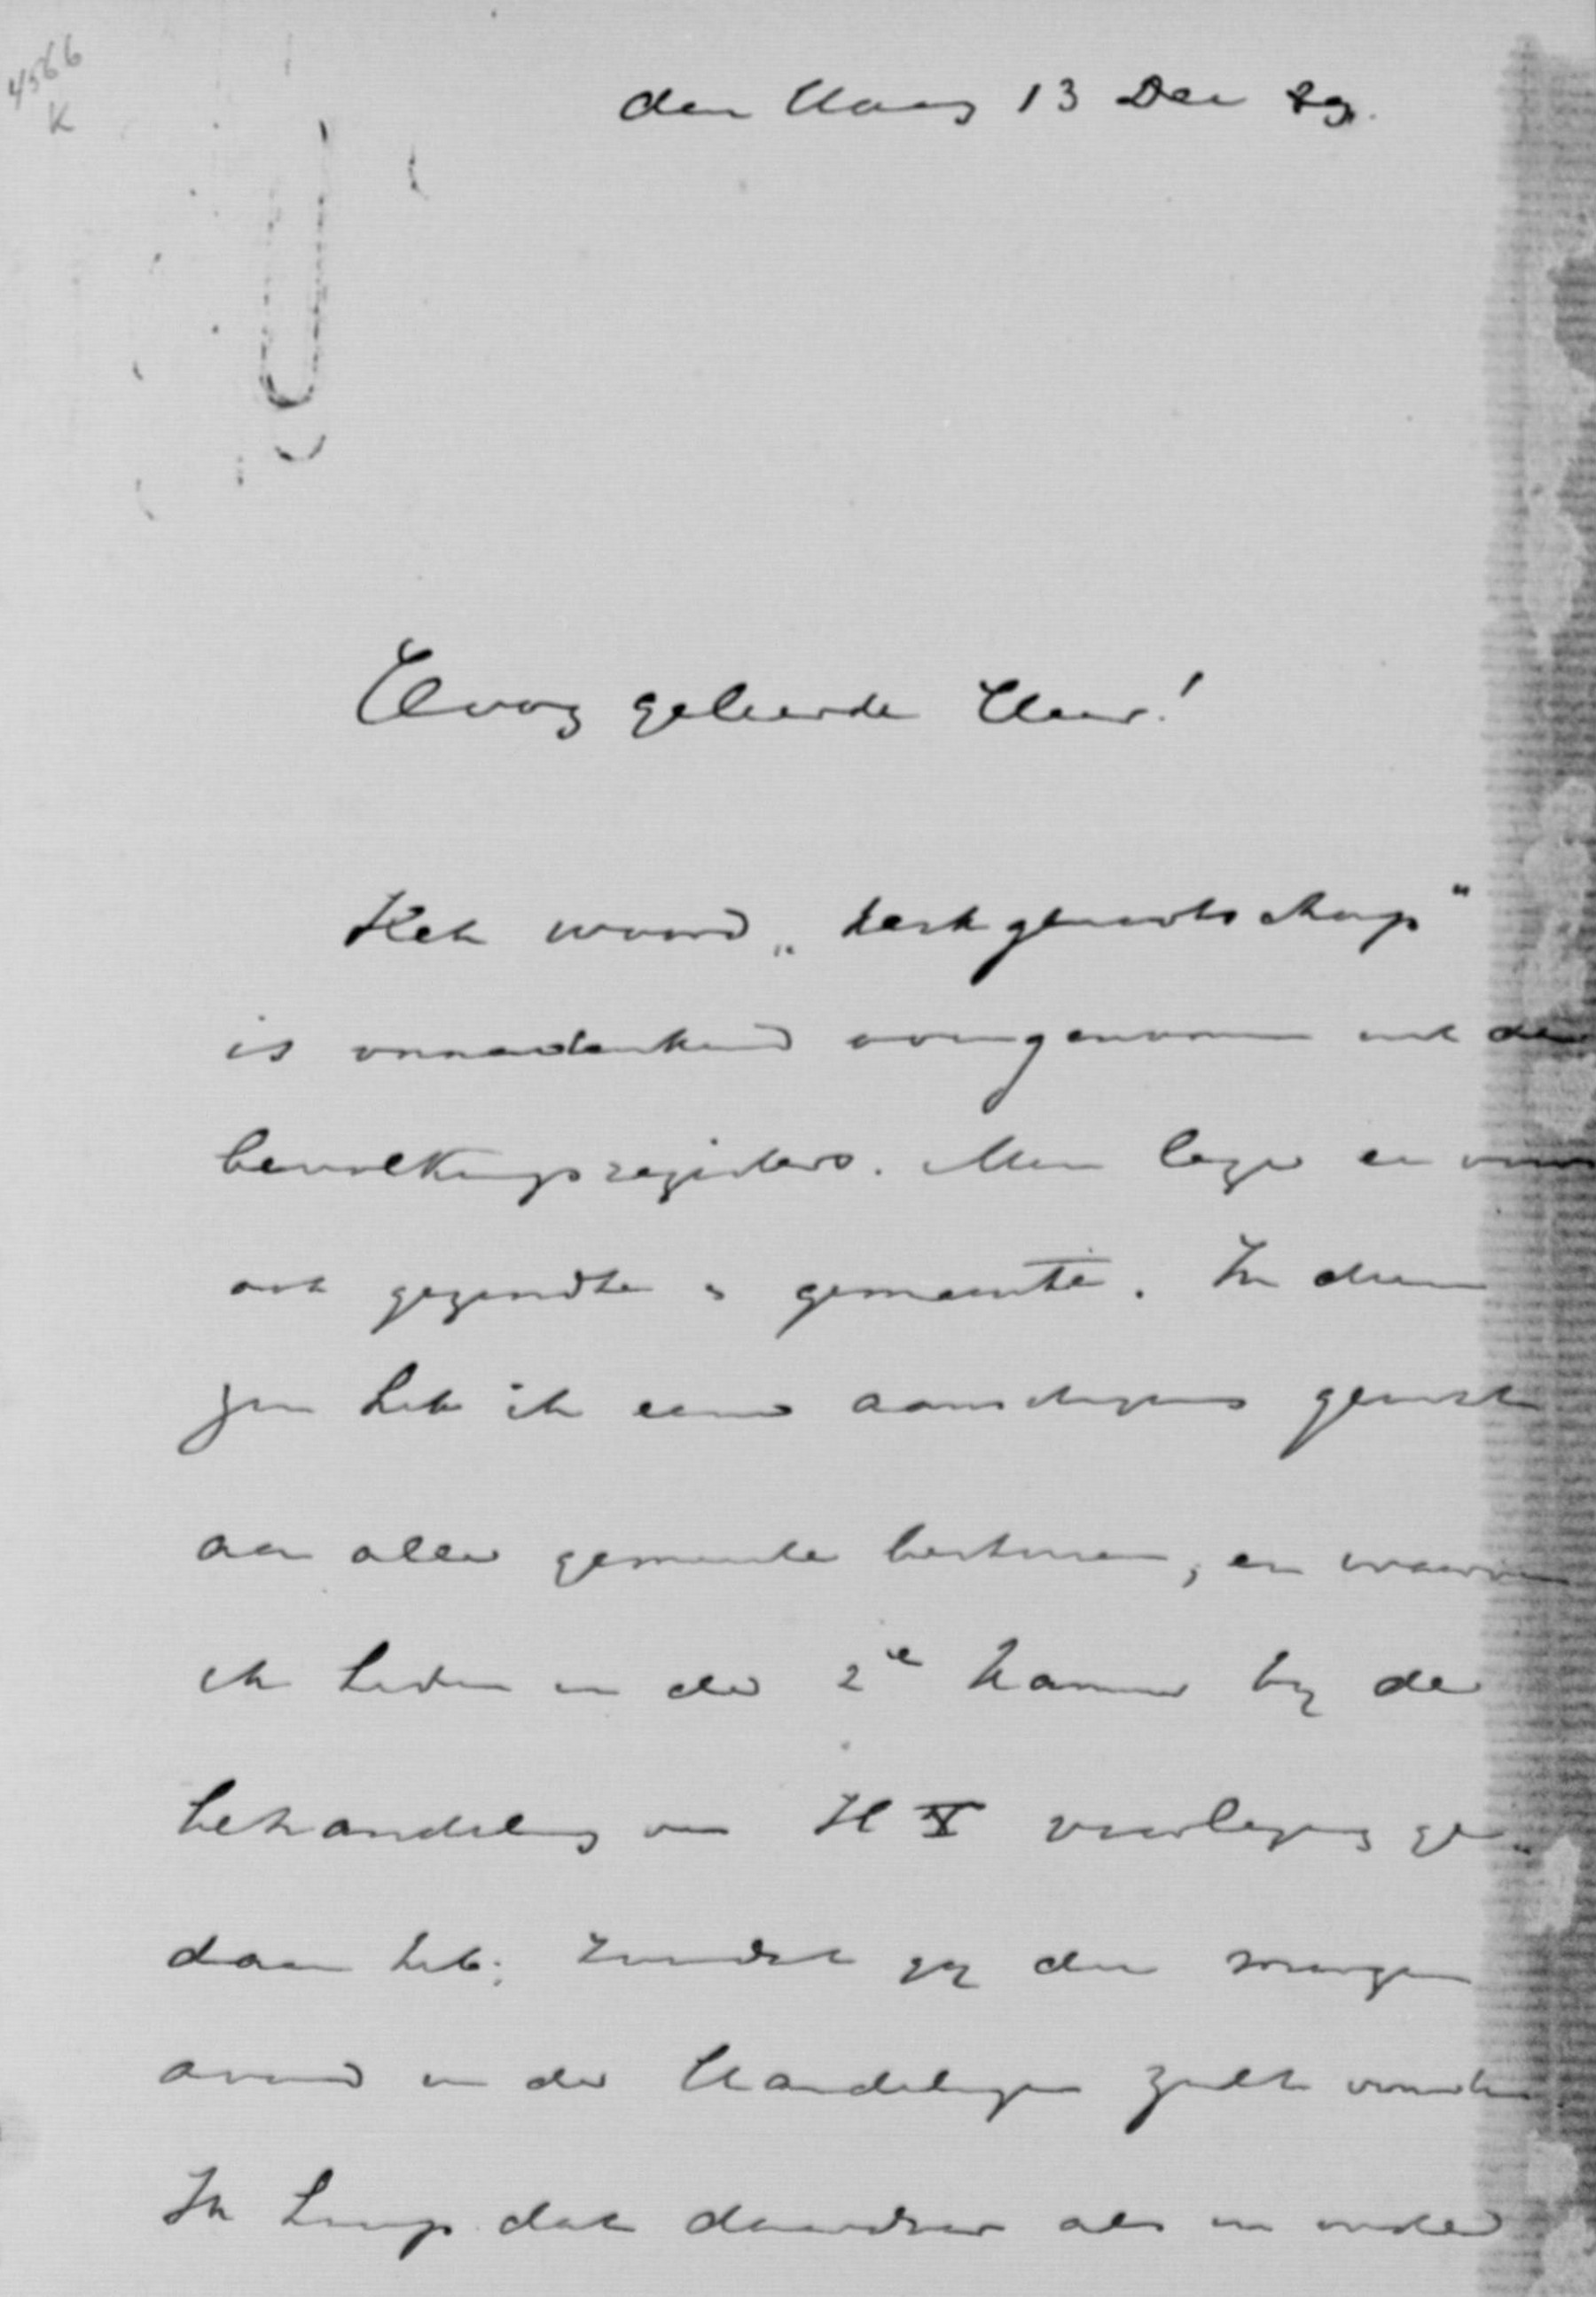 4566
K
den Haag 13 Dec 89.
Hoog geleerde Heer!
Het woord „kerkgenootschap"
is onnadenkend overgenomen uit de
bevolkingsregisters. Men leze er voor
ook gezindte of gemeente. In dien
zin heb ik eene aanschrijving gericht
aan alle gemeente besturen, en waarvan
ik heden in de 2e Kamer bij de
behandeling van H V voorlezing ge-
daan heb; zooals gij die morgen
avond in de Handelingen zult vinden
Ik hoop dat daardoor als in